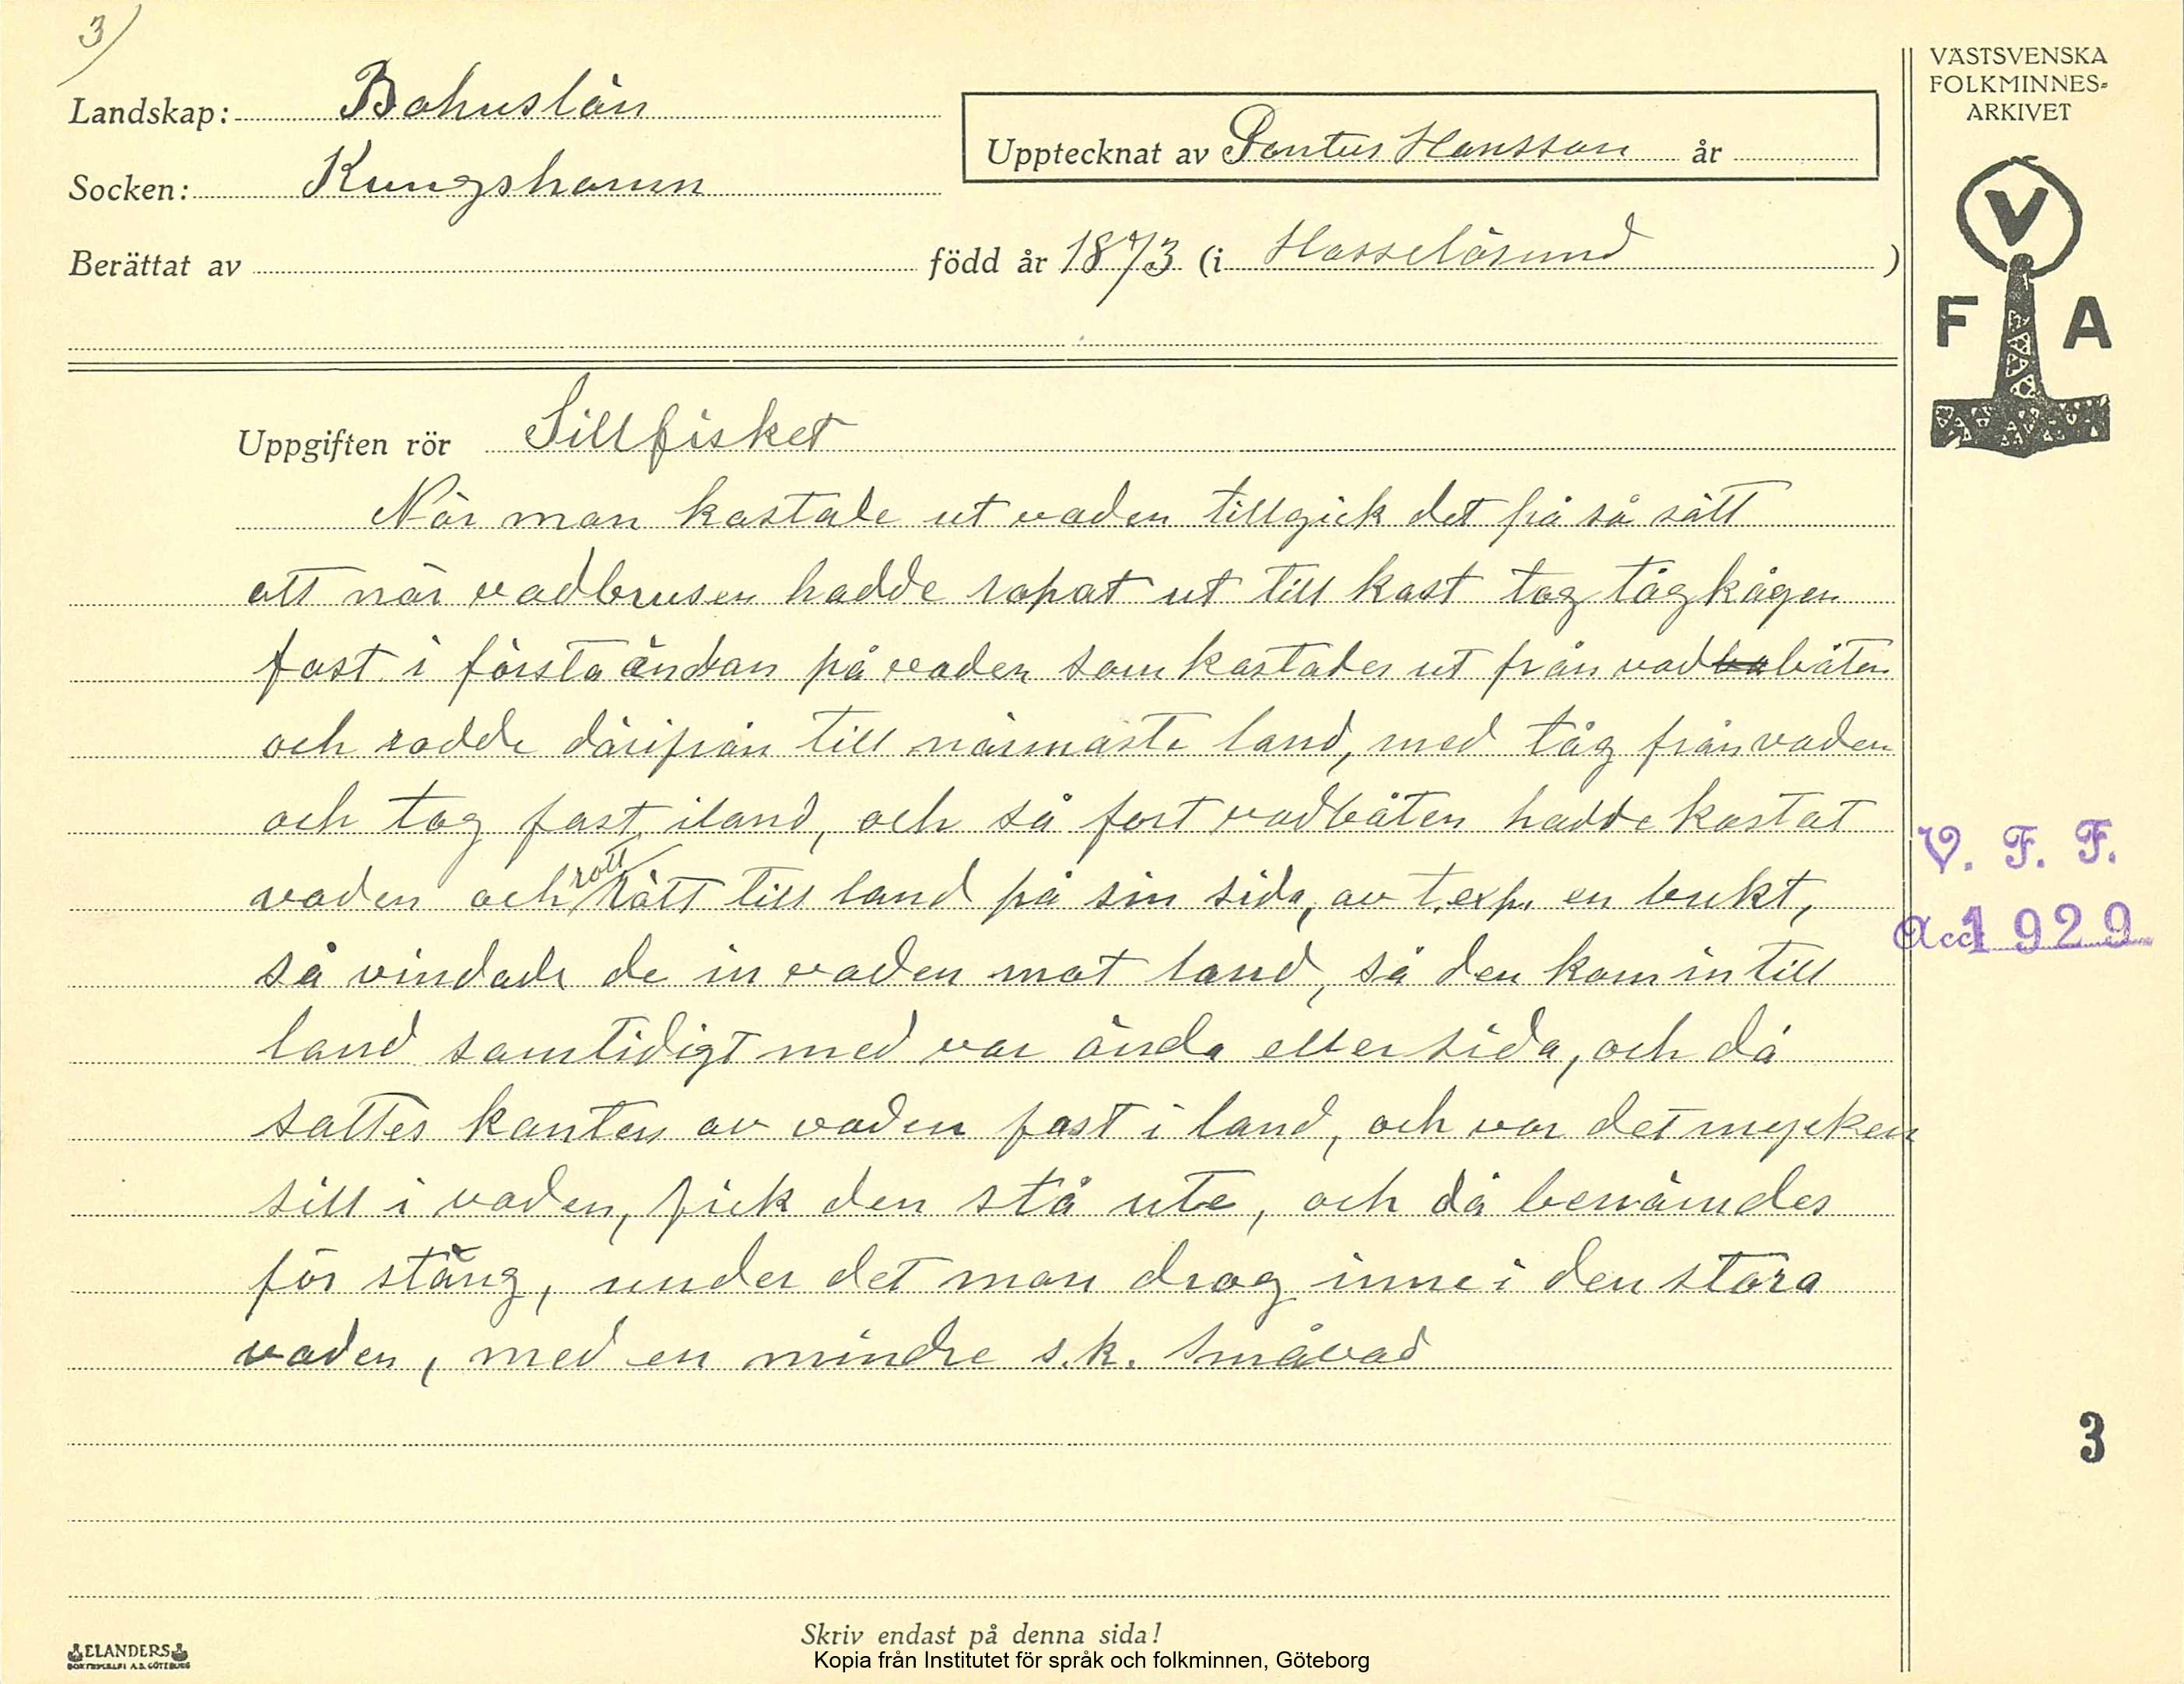 3)
Landskap: Bohuslän
Upptecknat av Pontus Hansson år
Socken: Kungshamn
Berättat av född år 1873 (i Hasselösund )
VÄSTSVENSKA
FOLKMINNES-
ARKIVET
V
F A
Uppgiften rör Sillfisket
När man kastade ut vaden tillgick det på så sätt
att när vadbrusen hadde ropat ut till kast tog tågkågen
fast i första ändan på vaden som kastades ut från vadbåten
och rodde därifrån till närmaste land, med tåg från vaden
och tog fast iland, och så fort vadbåten hadde kastat
vaden och rott rätt till land på sin sida, av t.exp. en bukt,
så vindade de in vaden mot land, så den kom in till
land samtidigt med var ända eller sida, och då
sattes kanten av vaden fast i land, och var det mycken
sill i vaden, fick den stå ute, och då benämdes
för stäng, under det man drog inne i den stora
vaden, med en mindre s.k. småvad
V. F. F.
Acc 1929
3
Skriv endast på denna sida!
Kopia från Institutet för språk och folkminnen, Göteborg
ELANDERS
BOKTRYCKERI A.B. GÖTEBORG